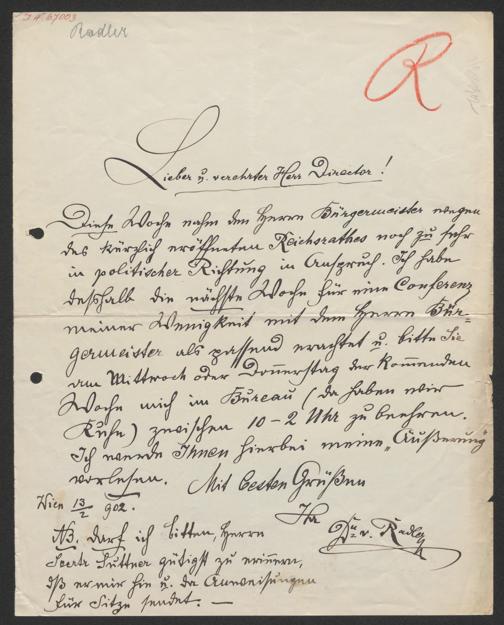 I.N. 67003
Radler
R
Lieber u. verehrter Herr Director!
Diese Woche nahm den Herrn Bürgermeister wegen
des kürzlich eröffneten Reichsrathes noch zu sehr
in politischer Richtung in Anspruch. Ich habe
deßhalb die nächste Woche für eine Conferenz
meiner Wenigkeit mit dem Herrn Bür-
germeister als passend erachtet u. bitte Sie
am Mittwoch oder Donnerstag der kommenden
Woche mich im Bureau (da haben wir
Ruhe) zwischen 10-2 Uhr zu beehren.
Ich werde Ihnen hierbei meine „Äußerung"
vorlesen. Mit besten Grüßen
Wien 13/2 902. Ihr
v. Radler
NB. Darf ich bitten, Herrn
Suttner gütigst zu erinnern,
dß er mir hie u. da Anweisungen
für Sitze sendet. —